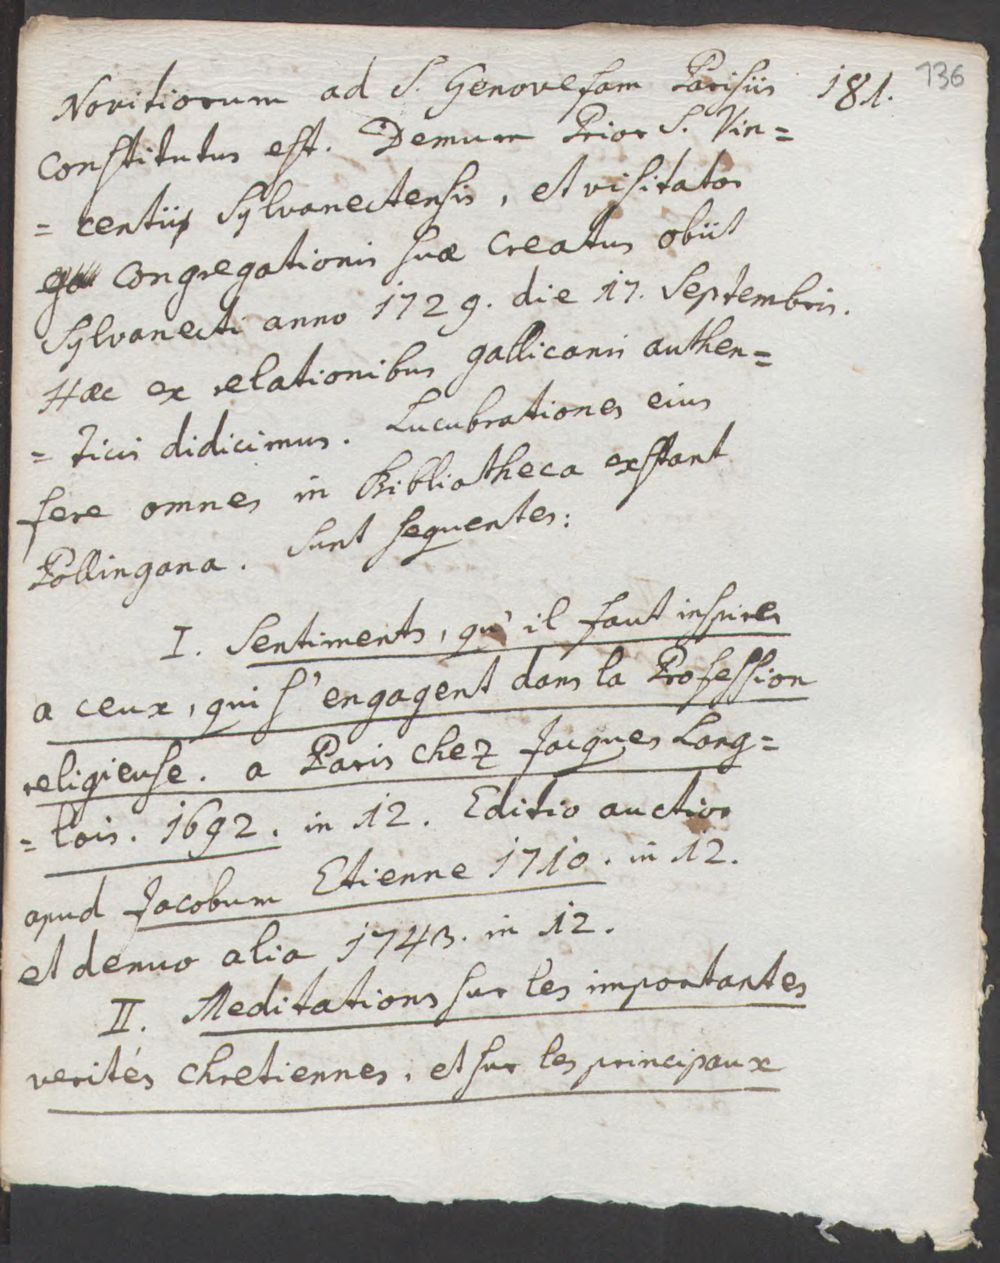 136
Novitiorum ad S. Genovefam Parisiis 181.
constitutus est. Demum Prior S. Vin=
= centii Sylvanectensis, et visitator
congregationis suæ creatus obiit
Sylvanecti anno 1729. die 17. Septembris.
Hæc ex relationibus gallicanis authen=
= ticis didicimus. Lucubrationes eius
fere omnes in Bibliotheca exstant
Pollingana. Sunt sequentes:
I. Sentiments, qu' il faut inspirer
a ceux, qui s'engagent dans la Profession
religieuse. a Paris chez Jacques Lang=
= lois. 1692. in 12. Editio auctior
apud Jacobum Etienne 1710. in 12.
et denuo alia 1743. in 12.
II. Meditations sur les importantes
verités chretiennes, et sur les principaux